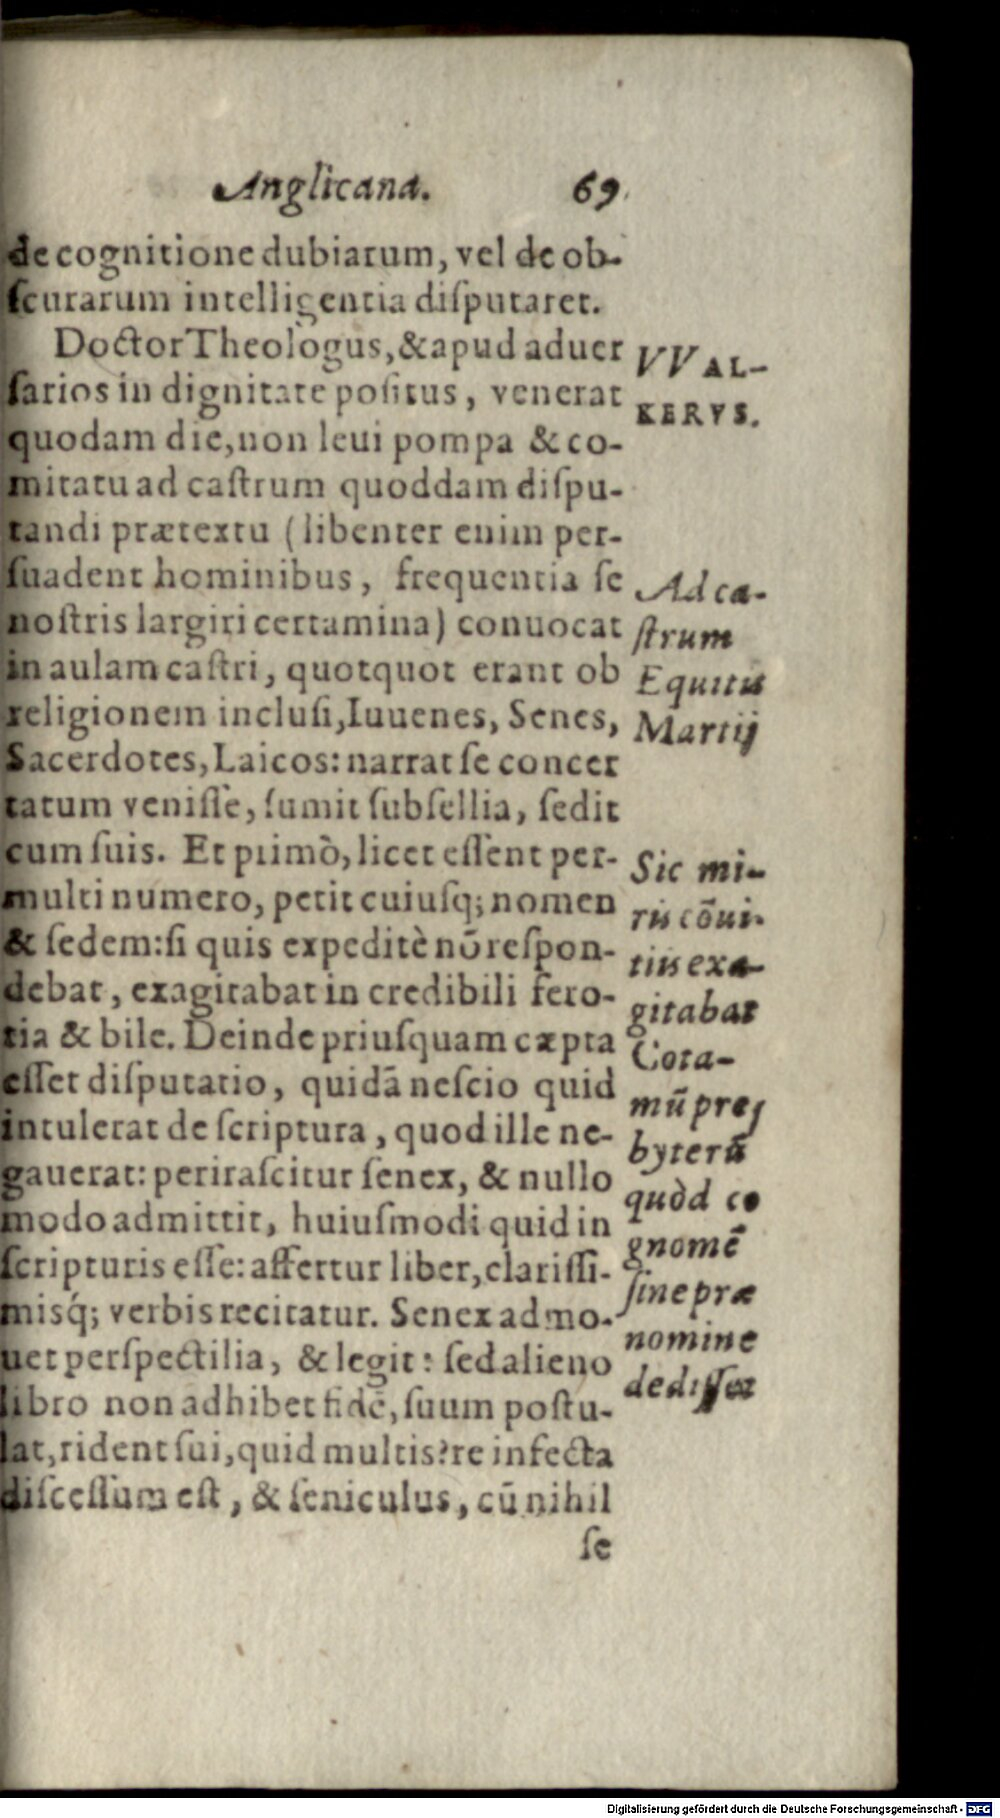 Anglicana. 69.
de cognitione dubiarum, vel de ob-
ſcurarum intelligentia diſputaret.
Doctor Theologus, & apud aduer
ſarios in dignitate poſitus, venerat
quodam die, non leui pompa & co-
mitatu ad caſtrum quoddam diſpu-
tandi prætextu (libenter enim per-
ſuadent hominibus, frequentia ſe
noſtris largiri certamina) conuocat
in aulam caſtri, quotquot erant ob
religionem incluſi, Iuuenes, Senes,
Sacerdotes, Laicos: narrat ſe concer
tatum veniſſe, ſumit ſubſellia, ſedit
cum ſuis. Et primò, licet eſſent per-
multi numero, petit cuiuſq; nomen
& ſedem: ſi quis expeditè nō reſpon-
debat, exagitabat in credibili fero-
tia & bile. Deinde priuſquam cæpta
eſſet diſputatio, quidā neſcio quid
intulerat de ſcriptura, quod ille ne-
gauerat: periraſcitur ſenex, & nullo
modo admittit, huiuſmodi quid in
ſcripturis eſſe: affertur liber, clariſſi-
misq́; verbis recitatur. Senex admo-
uet perſpectilia, & legit: ſed alieno
libro non adhibet fidē, ſuum poſtu-
lat, rident ſui, quid multis? re infecta
diſceſſum eſt, & ſeniculus, cū nihil
ſe
VVAL-
KERVS.
Ad ca-
ſtrum
Equitis
Martij
Sic mi-
ris cōui-
tiis exa-
gitabat
Cota-
mū preſ
byterū
quòd co
gnomē
ſine præ
nomine
dediſſet
Digitalisierung gefördert durch die Deutsche Forschungsgemeinschaft - DFG